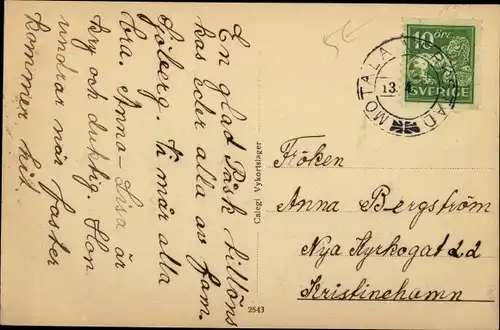 En glad Påsk tillöns
kas Eder alla av fam.
Sjöberg. Vi mår alla
bra. Anna-Lisa är
kry och duktig. Hon
undrar när faster
kommer hit.
5€
10 ÖRE
SVERIGE
MOTALA VERKSTAD
13. 4.
Fröken
Anna Bergström
Nya Kyrkogat 22
Kristinehamn
Calegi Vykortslager
2543